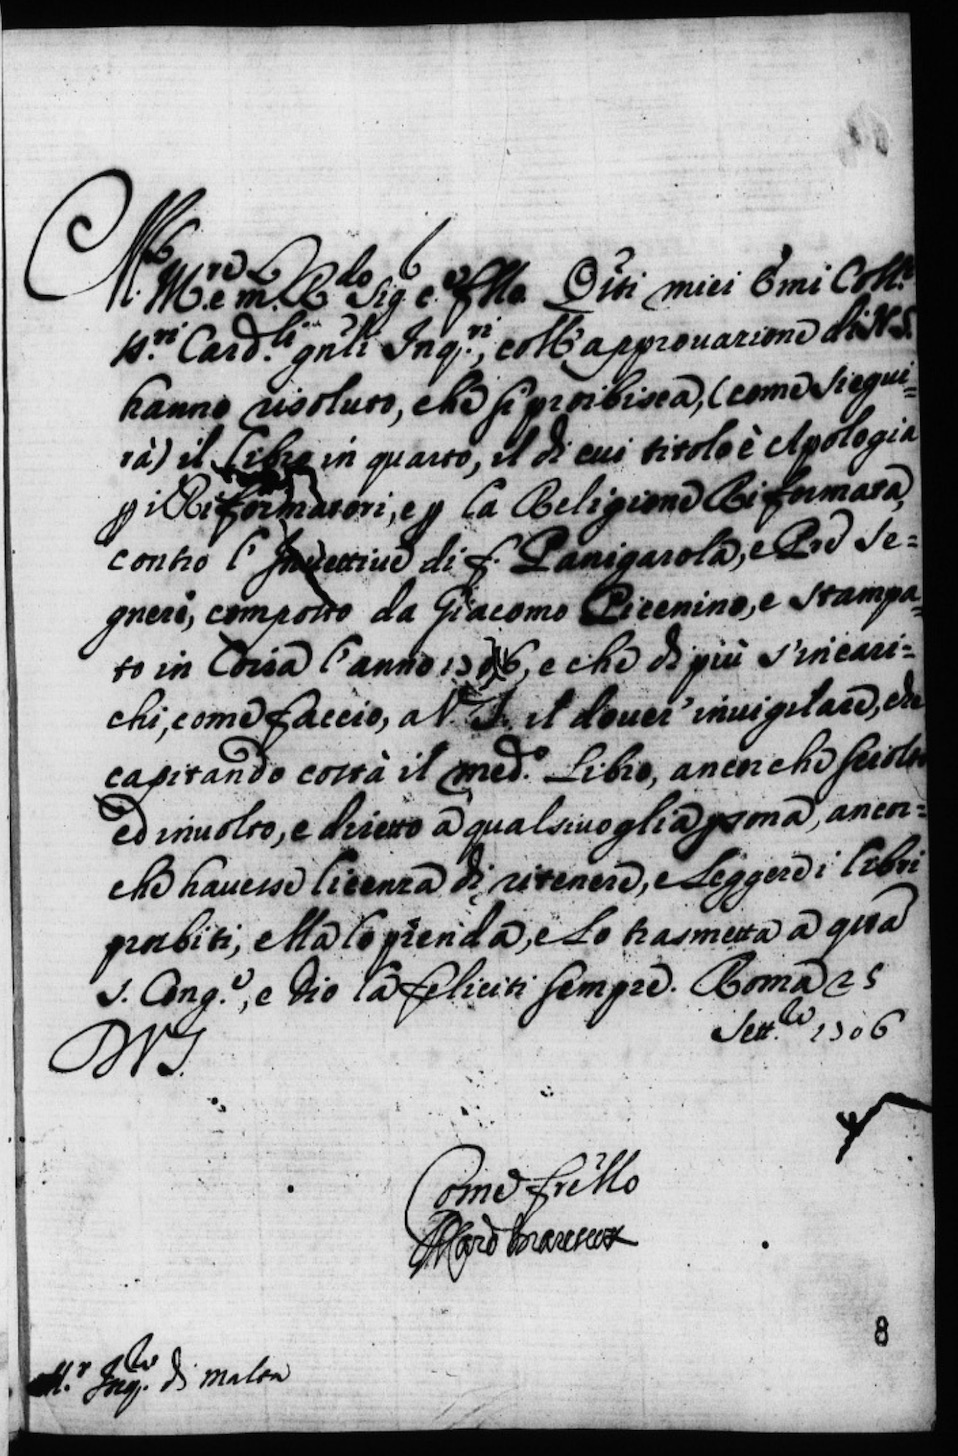 M. Ill.re e m. R.do Sig.e c. frllo. Qsti miei Emi Coll.i
SS.ri Card.li gnli Inq.ri, coll'approuazione di N. S.
hanno risoluto, che si proibisca, (come siegui=
rà) il Libro in quarto, il di cui titolo è Apologia
p i Riformatori, e p la Religione Riformata,
contro l'Inuettiue di f. Panigarola, e Pre Se=
gneri, composto da Giacomo Picenino, e stampa=
to in Coira l'anno 1706, e che di più s'incari=
chi, come faccio, a V. S. il douer' inuigilare, che
capitando costà il med.o Libro, ancorche sciolto
ed inuolto, e diretto a qualsiuoglia psona, ancor=
che hauesse licenza di ritenere, e leggere i libri
proibiti, ella lo prenda, e lo trasmetta a qsta
S. Cong.e, e Dio la feliciti sempre. Roma 25
Sett.re 1706
D V S.
Come frello
Il Card Marescotti
M.r Inq.re di Malta
8